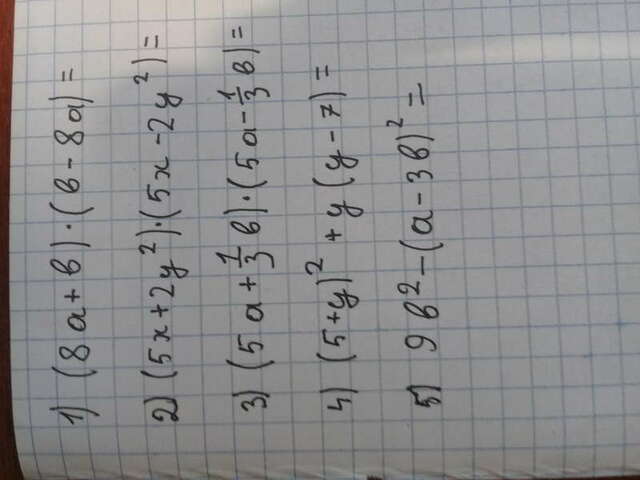 1) (8a+в)·(в-8a)=
2) (5x+2y²)·(5x-2y²)=
3) (5a+1/3в)·(5a-1/3в)=
4) (5+y)²+y(y-7)=
5) 9в²-(a-3в)²=